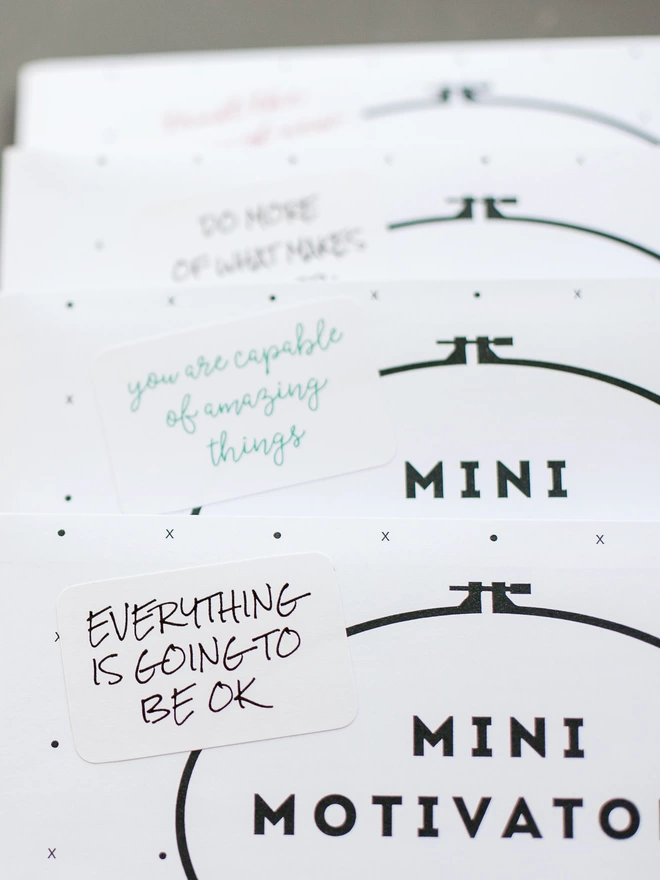 DO MORE
OF WHAT MAKES
you are capable
of amazing
things
MINI
EVERYTHING
IS GOING TO
BE OK
MINI
MOTIVATO